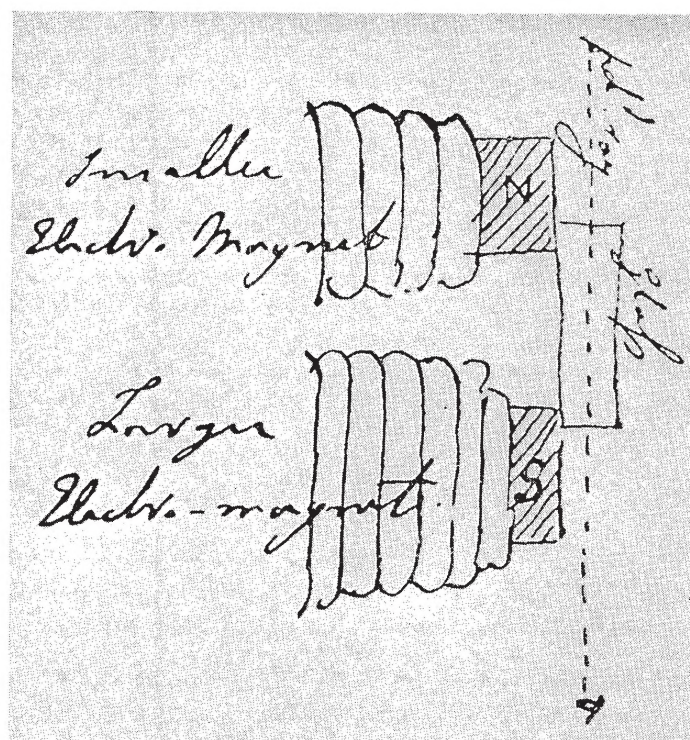 Smaller
Electro. Magnet
N
Larger
Electro-magnet.
S